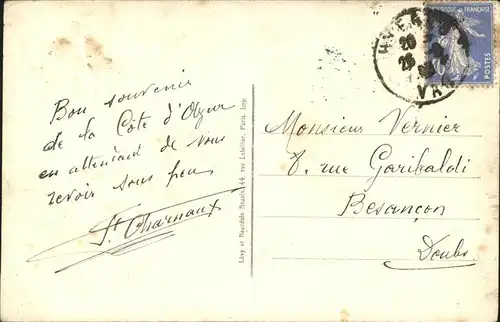 Bon souvenir
de la Côte d'Azur
en attendant de vous
revoir sous peu
Lévy et Neurdein Réunis, 44, rue Letellier, Paris. Imp.
Monsieur Vernier
8, rue Garibaldi
Besançon
Doubs
RÉPUBLIQUE FRANÇAISE
POSTES
VAR